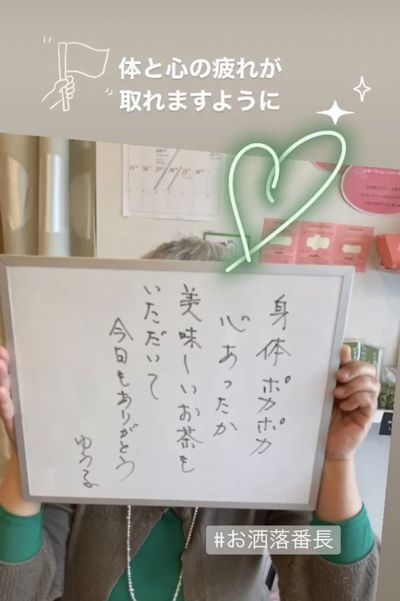 体と心の疲れが
取れますように
身体ポカポカ
心あったか
美味しいお茶も
いただいて
今日もありがとう
ゆうこ
#お洒落番長